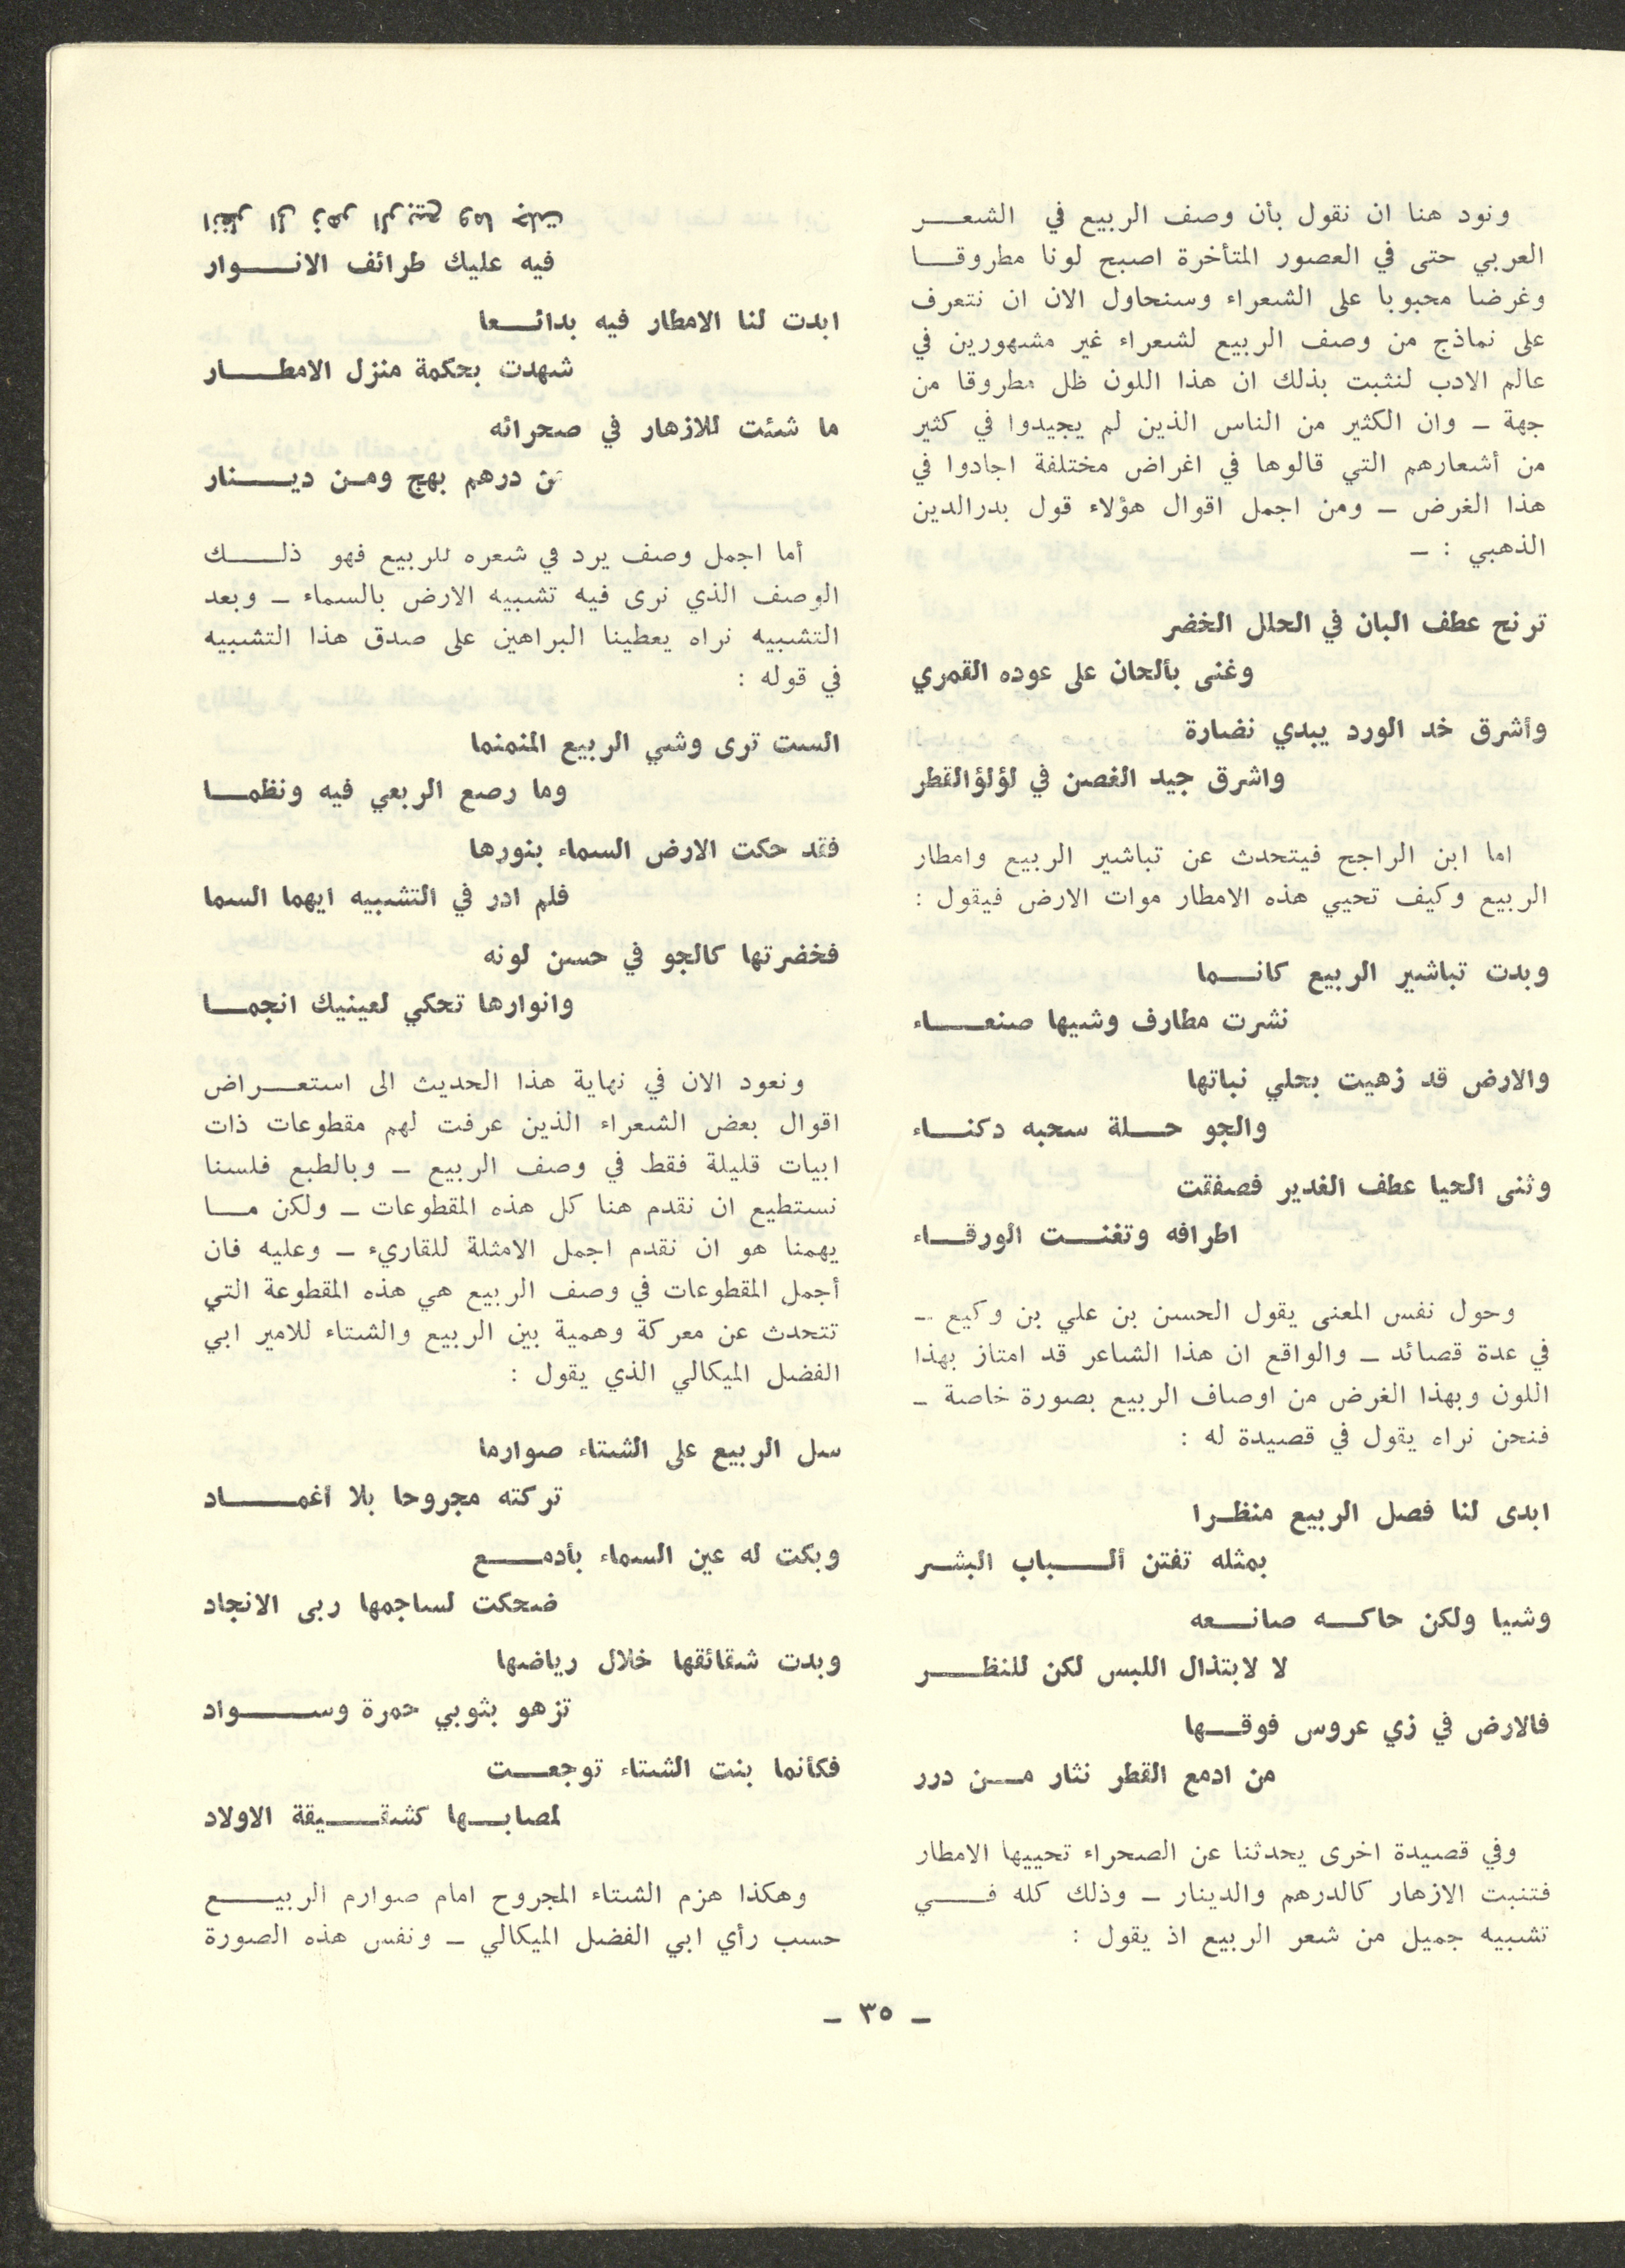 ونود هنا ان نقول بأن وصف الربيع في الشعر
العربي حتى في العصور المتأخرة اصبح لونا مطروقا
وغرضا محبوبا على الشعراء وسنحاول الان ان نتعرف
على نماذج من وصف الربيع لشعراء غير مشهورين في
عالم الادب لنثبت بذلك ان هذا اللون ظل مطروقا من
جهة ــ وان الكثير من الناس الذين لم يجيدوا في كثير
من أشعارهم التي قالوها في اغراض مختلفة اجادوا في
هذا الغرض ــ ومن اجمل اقوال هؤلاء قول بدرالدين
الذهبي : ــ
ترنح عطف البان في الحلل الخضر
وغنى بألحان على عوده القمري
وأشرق خد الورد يبدي نضارة
واشرق جيد الغصن في لؤلؤالقطر
اما ابن الراجح فيتحدث عن تباشير الربيع وامطار
الربيع وكيف تحيي هذه الامطار موات الارض فيقول :
وبدت تباشير الربيع كانما
نشرت مطارف وشيها صنعاء
والارض قد زهيت بحلي نباتها
والجو حلة سحبه دكناء
وثنى الحيا عطف الغدير فصفقت
اطرافه وتغنت الورقاء
وحول نفس المعنى يقول الحسن بن علي بن وكيع ــ
في عدة قصائد ــ والواقع ان هذا الشاعر قد امتاز بهذا
اللون وبهذا الغرض من اوصاف الربيع بصورة خاصة ــ
فنحن نراه يقول في قصيدة له :
ابدى لنا فصل الربيع منظرا
بمثله تفتن ألباب البشر
وشيا ولكن حاكه صانعه
لا لابتذال اللبس لكن للنظر
فالارض في زي عروس فوقها
من ادمع القطر نثار من درر
وفي قصيدة اخرى يحدثنا عن الصحراء تحييها الامطار
فتنبت الازهار كالدرهم والدينار ــ وذلك كله في
تشبيه جميل من شعر الربيع اذ يقول :
انظر الى زهر الربيع وما جلت
فيه عليك طرائف الانوار
ابدت لنا الامطار فيه بدائعا
شهدت بحكمة منزل الامطار
ما شئت للازهار في صحرائه
من درهم بهج ومن دينار
أما اجمل وصف يرد في شعره للربيع فهو ذلك
الوصف الذي نرى فيه تشبيه الارض بالسماء ــ وبعد
التشبيه نراه يعطينا البراهين على صدق هذا التشبيه
في قوله :
الست ترى وشي الربيع المنمنما
وما رصع الربعي فيه ونظما
فقد حكت الارض السماء بنورها
فلم ادر في التشبيه ايهما السما
فخضرتها كالجو في حسن لونه
وانوارها تحكي لعينيك انجما
ونعود الان في نهاية هذا الحديث الى استعراض
اقوال بعض الشعراء الذين عرفت لهم مقطوعات ذات
ابيات قليلة فقط في وصف الربيع ــ وبالطبع فلسنا
نستطيع ان نقدم هنا كل هذه المقطوعات ــ ولكن ما
يهمنا هو ان نقدم اجمل الامثلة للقاريء ــ وعليه فان
أجمل المقطوعات في وصف الربيع هي هذه المقطوعة التي
تتحدث عن معركة وهمية بين الربيع والشتاء للامير ابي
الفضل الميكالي الذي يقول :
سل الربيع على الشتاء صوارما
تركته مجروحا بلا أغماد
وبكت له عين السماء بأدمع
ضحكت لساجمها ربى الانجاد
وبدت شقائقها خلال رياضها
تزهو بثوبي حمرة وسواد
فكأنما بنت الشتاء توجعت
لمصابها كشقيقة الاولاد
وهكذا هزم الشتاء المجروح امام صوارم الربيع
حسب رأي ابي الفضل الميكالي ــ ونفس هذه الصورة
ــ ٣٥ ــ